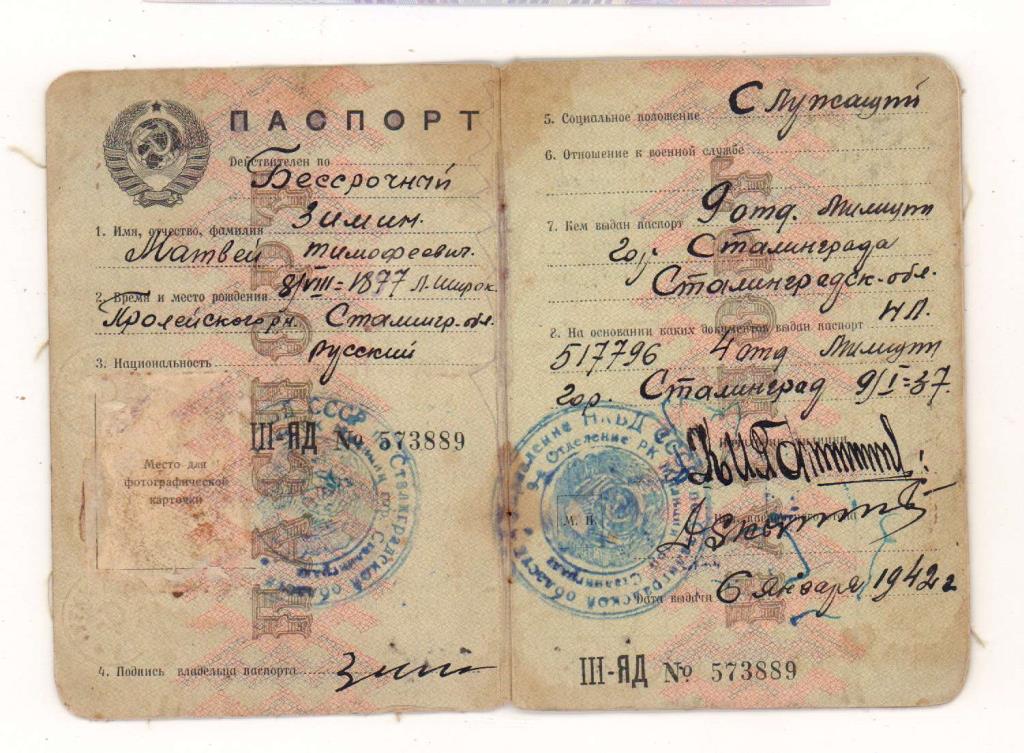 ПАСПОРТ
Действителен по
Бессрочный
Зимин.
1. Имя, отчество, фамилия
Матвей Тимофеевич.
2. Время и место рождения 8/VIII=1877
Пролейского рн. Сталингр. обл.
3. Национальность русский
Место для
фотографической
карточки
III-ЯД № 573889
4. Подпись владельца паспорта
5. Социальное положение Служащий
6. Отношение к военной службе
7. Кем выдан паспорт 9 отд. Милиции
гор. Сталинграда
Сталинградск. обл.
8. На основании каких документов выдан паспорт НП.
517796 4 отд Милиции
гор. Сталинград 9/I=37.
М. П.
Дата выдачи 6 Января 1942 г
III-ЯД № 573889